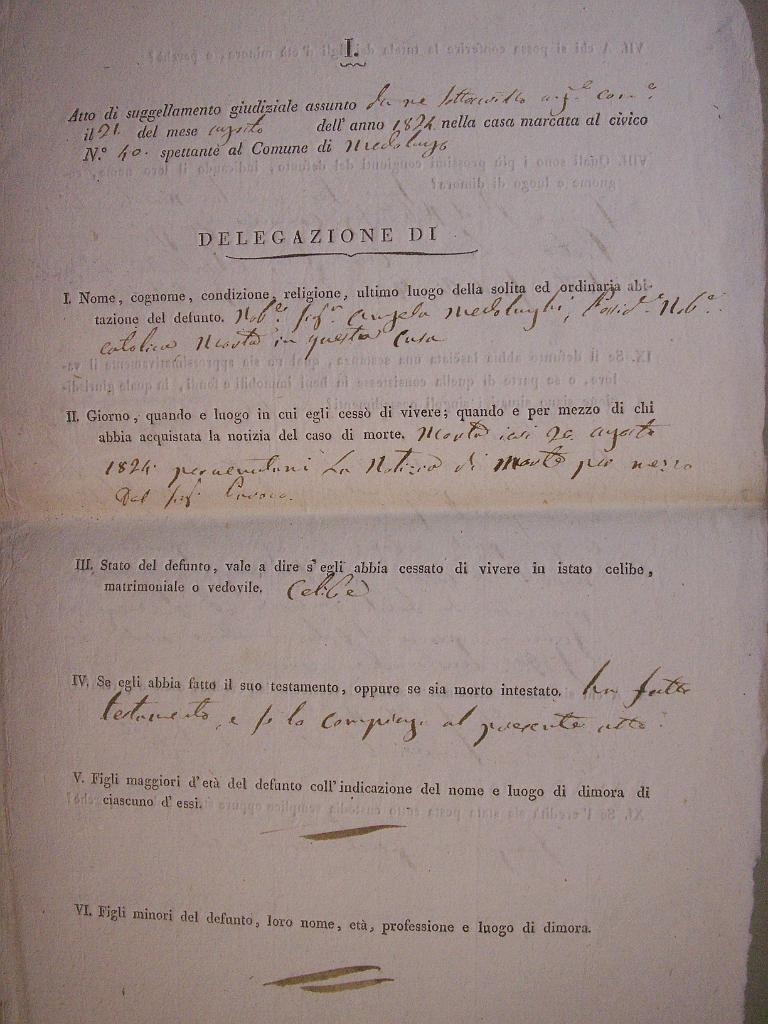 I.
Atto di suggellamento giudiziale assunto da me sottoscritto
il 21. del mese agosto dell'anno 1824 nella casa marcata al civico
N.° 40. spettante al Comune di Medolago
DELEGAZIONE DI
I. Nome, cognome, condizione, religione, ultimo luogo della solita ed ordinaria abi-
tazione del defunto. Nob.e Sig.r Angelo Medolaghi, Possid.e Nob.e
catolico Morto in questa Casa
II. Giorno, quando e luogo in cui egli cessò di vivere; quando e per mezzo di chi
abbia acquistata la notizia del caso di morte. Morto ieri 20. agosto
1824. pervenutami La Notizia di Morte per mezzo
Del Sig.r
III. Stato del defunto, vale a dire s'egli abbia cessato di vivere in istato celibe,
matrimoniale o vedovile. Celibe
IV. Se egli abbia fatto il suo testamento, oppure se sia morto intestato. ha fatto
testamento, e si lo al presente atto.
V. Figli maggiori d'età del defunto coll'indicazione del nome e luogo di dimora di
ciascuno d'essi.
VI. Figli minori del defunto, loro nome, età, professione e luogo di dimora.